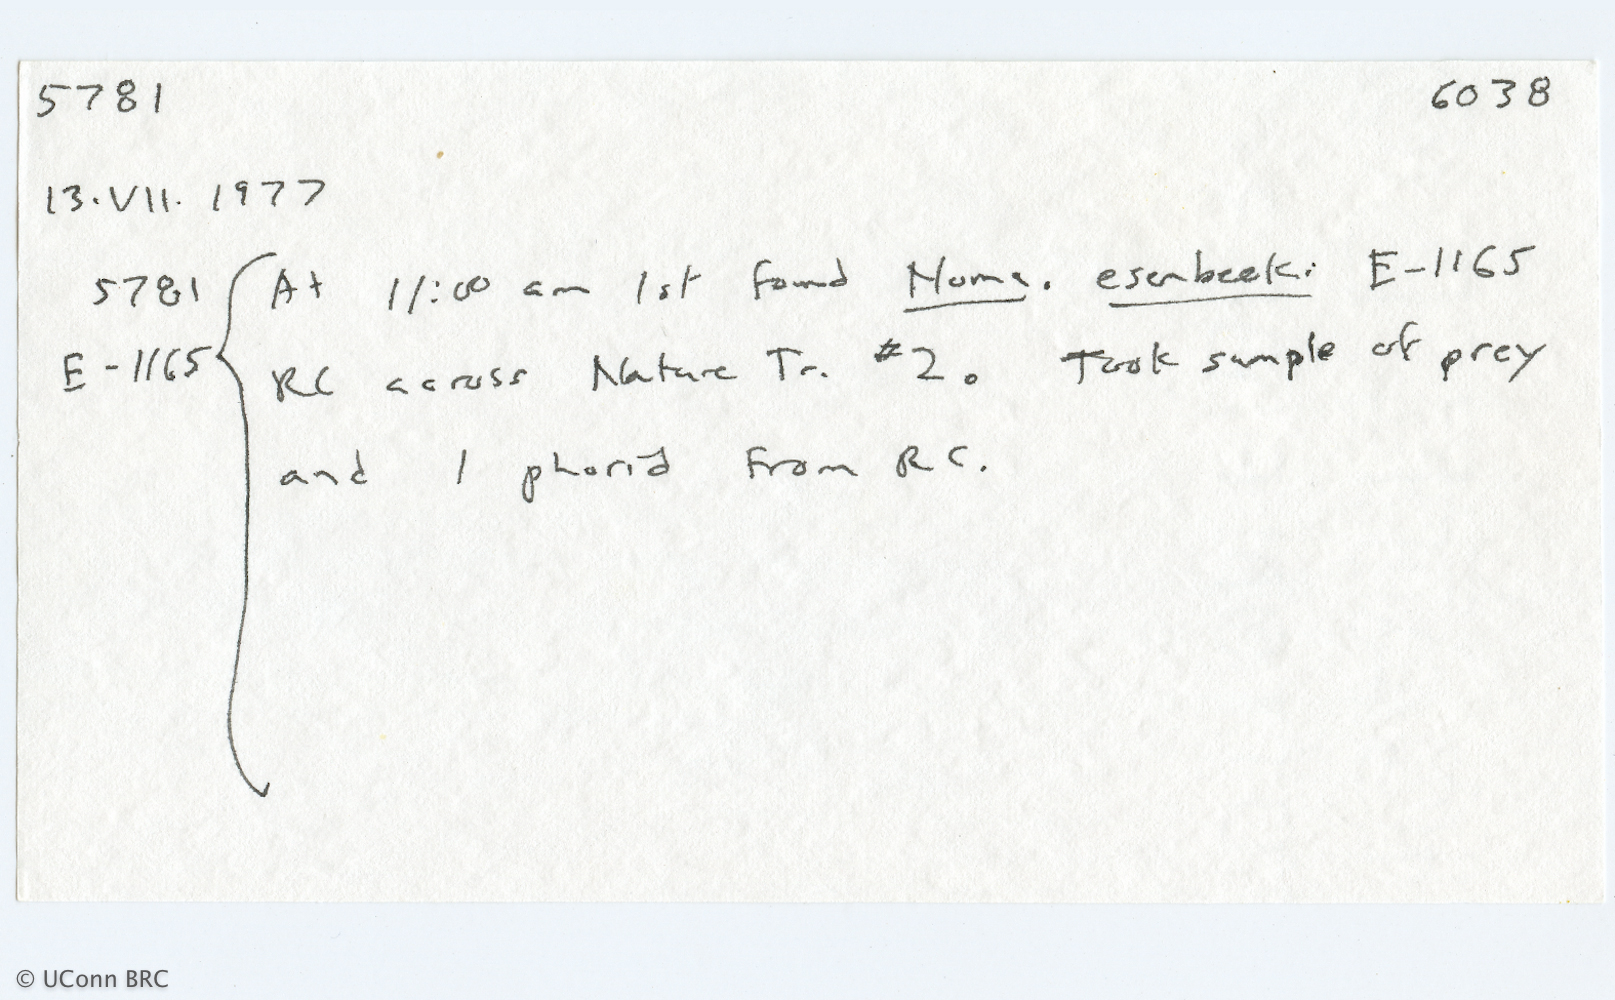 5781 6038
13.VII.1977
5781 At 11:00 am 1st found Noma. esenbecki E-1165
E-1165 RC across Nature Tr. #2. Took sample of prey
and 1 phorid from RC.
© UConn BRC